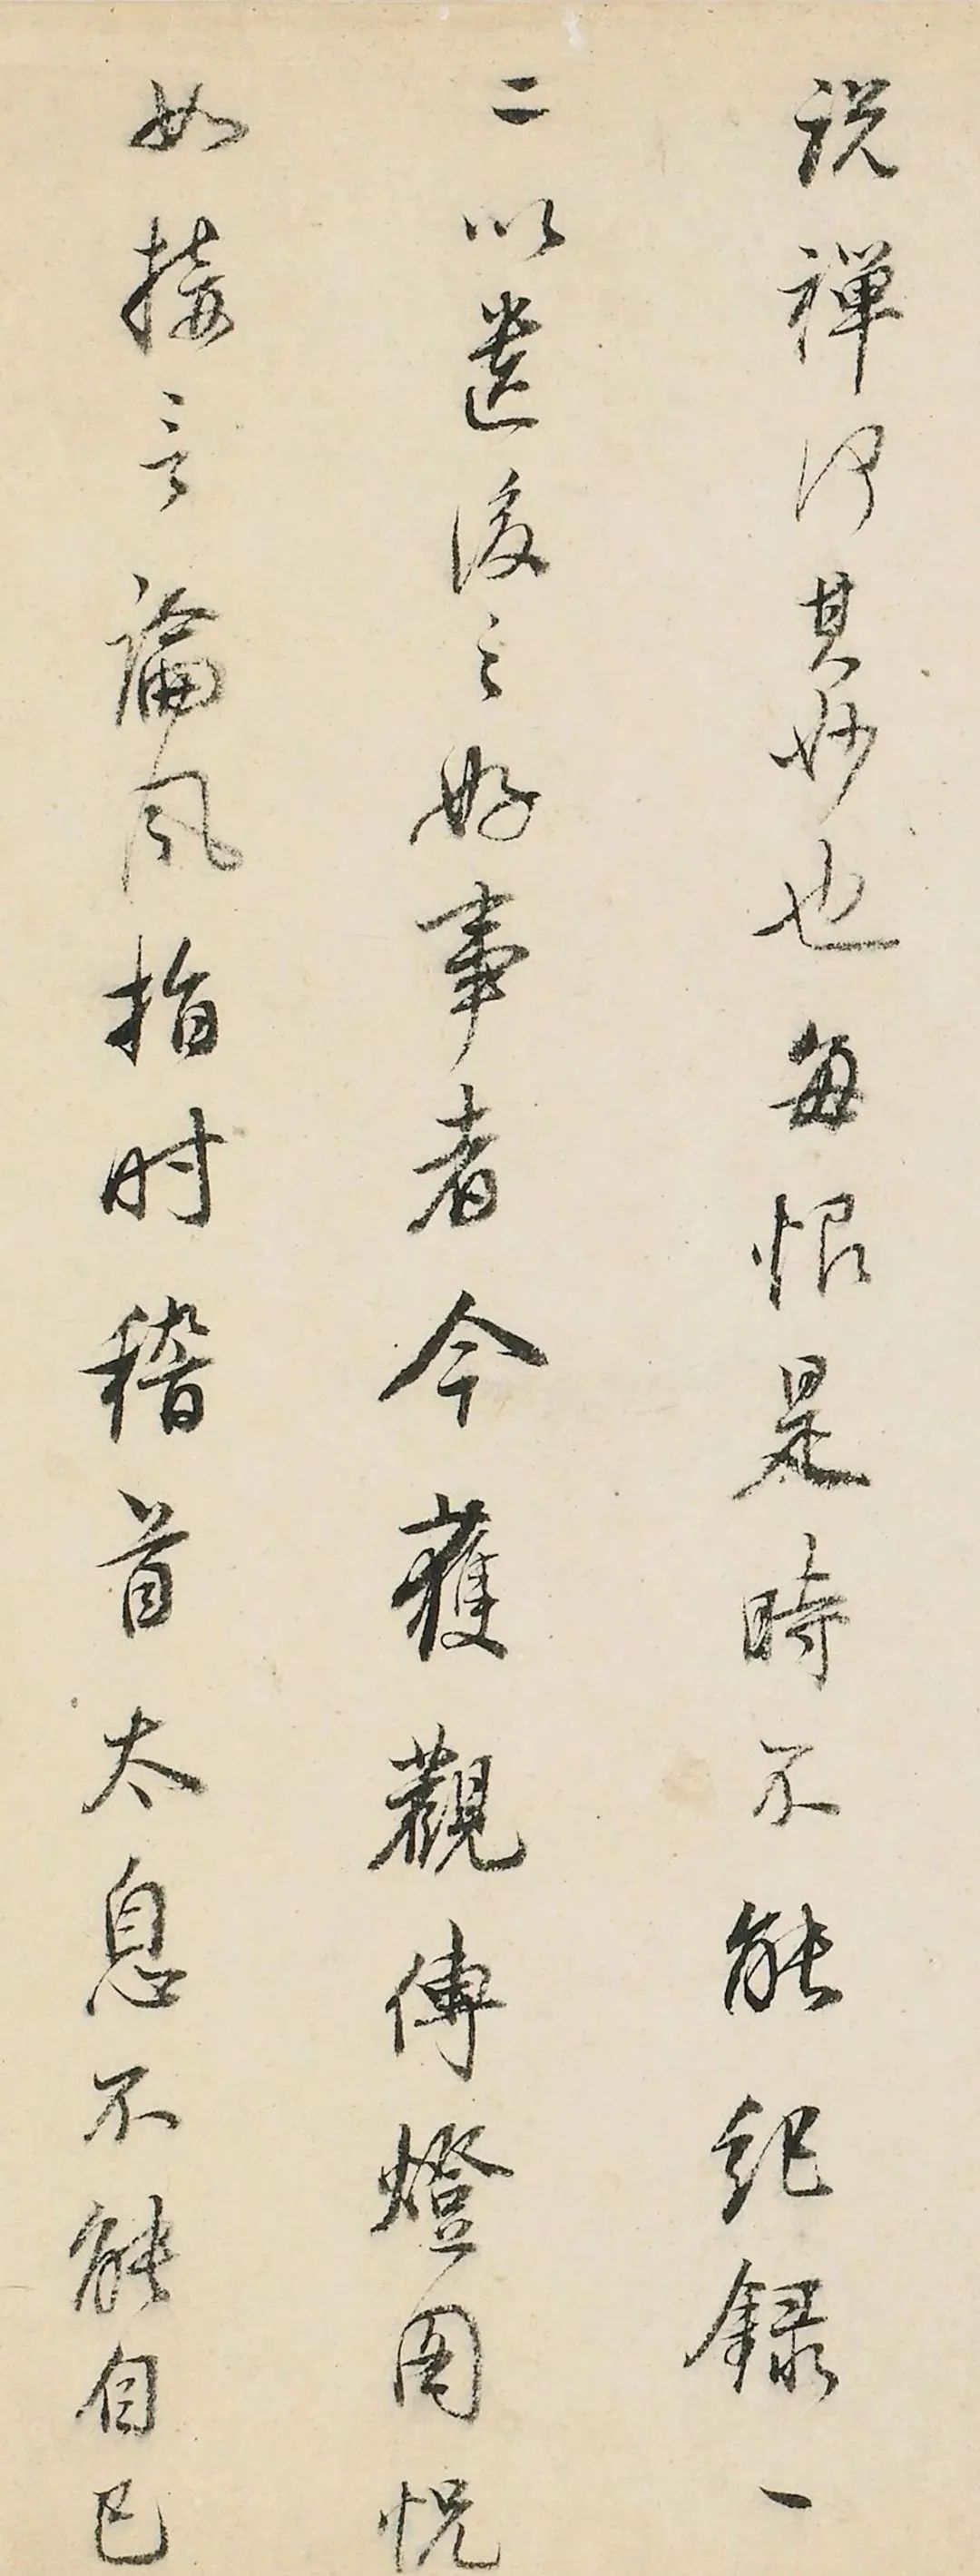 說禪何其妙也每恨是時不能紀錄一
二以遺後之好事者今獲觀傳燈圖恍
如接言論風指時稽首太息不能自已